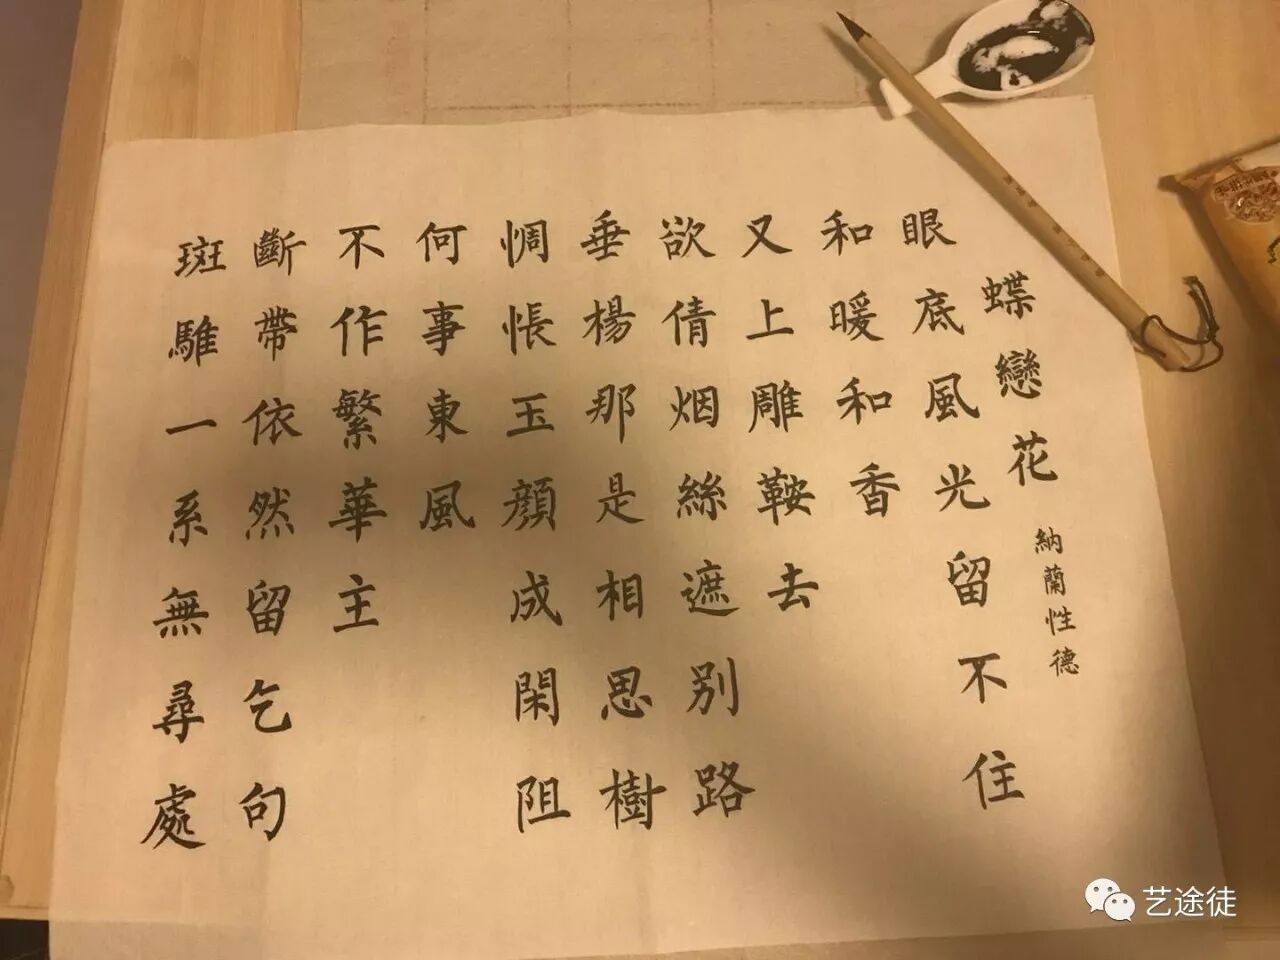 蝶戀花
納蘭性德
眼底風光留不住
和暖和香
又上雕鞍去
欲倩烟絲遮别路
垂楊那是相思樹
惆悵玉顔成閑阻
何事東風
不作繁華主
斷帶依然留乞句
斑騅一系無尋處
艺途徒